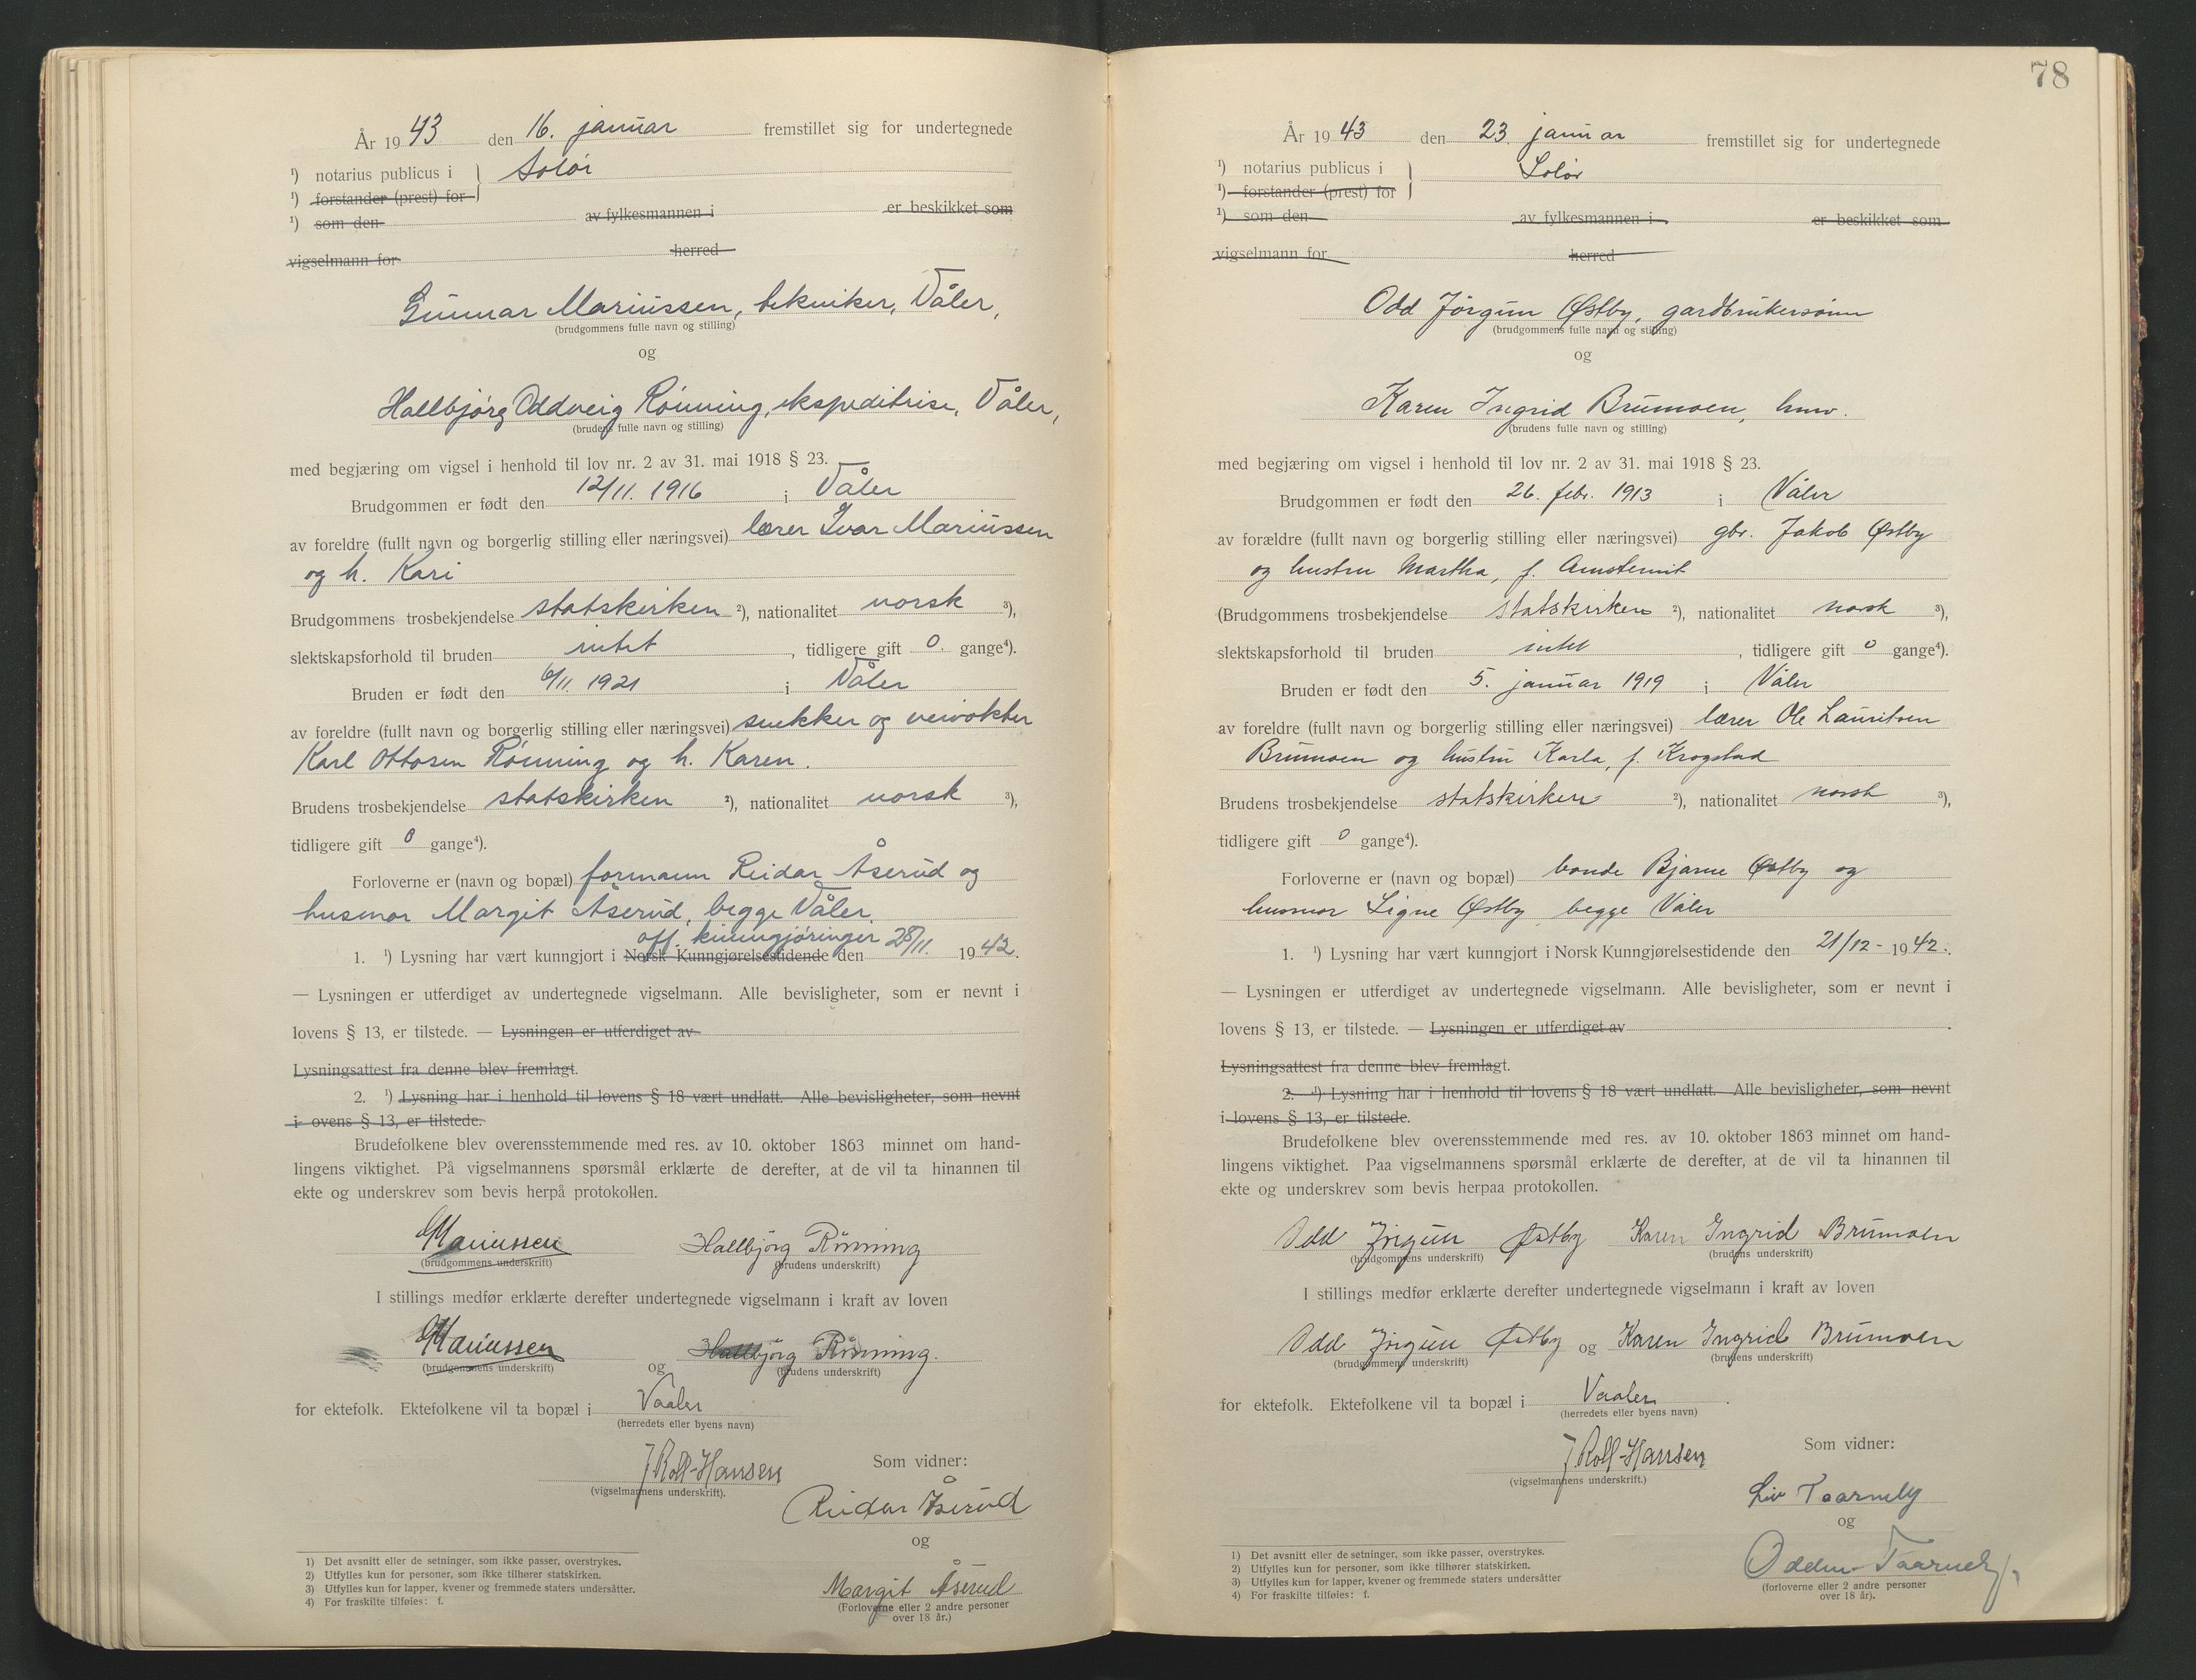 År 1943 den 16. januar fremstillet sig for undertegnede
¹) notarius publicus i } Solør
¹) forstander (prest) for
¹) som den av fylkesmannen i er beskikket som
vigselmann for herred
Gunnar Mariussen, tekniker, Våler,
(brudgommens fulle navn og stilling)
og
Hallbjørg Oddveig Rønning, ekspeditrise, Våler,
(brudens fulle navn og stilling)
med begjæring om vigsel i henhold til lov nr. 2 av 31. mai 1918 § 23.
Brudgommen er født den 12/11. 1916 i Våler
av foreldre (fullt navn og borgerlig stilling eller næringsvei) lærer Ivar Mariussen
og h. Kari
Brudgommens trosbekjendelse statskirken ²), nationalitet norsk ³),
slektskapsforhold til bruden intet, tidligere gift 0. gange⁴).
Bruden er født den 6/11. 1921 i Våler
av foreldre (fullt navn og borgerlig stilling eller næringsvei) snekker og veivokter
Karl Ottosen Rønning og h. Karen.
Brudens trosbekjendelse statskirken ²), nationalitet norsk ³),
tidligere gift 0 gange⁴).
Forloverne er (navn og bopæl) formann Reidar Åserud og
husmor Margit Åserud, begge Våler.
off. kunngjøringer
1. ¹) Lysning har vært kunngjort i Norsk Kunngjørelsestidende den 28/11. 1942.
— Lysningen er utferdiget av undertegnede vigselmann. Alle bevisligheter, som er nevnt i
lovens § 13, er tilstede. — Lysningen er utferdiget av
Lysningsattest fra denne blev fremlagt.
2. ¹) Lysning har i henhold til lovens § 18 vært undlatt. Alle bevisligheter, som nevnt
i ovens § 13, er tilstede.
Brudefolkene blev overensstemmende med res. av 10. oktober 1863 minnet om hand-
lingens viktighet. På vigselmannens spørsmål erklærte de derefter, at de vil ta hinannen til
ekte og underskrev som bevis herpå protokollen.
GMariussen Hallbjørg Rönning
(brudgommens underskrift) (brudens underskrift)
I stillings medfør erklærte derefter undertegnede vigselmann i kraft av loven
GMariussen og Hallbjørg Rönning.
(brudgommens underskrift) (brudens underskrift)
for ektefolk. Ektefolkene vil ta bopæl i Vaaler
(herredets eller byens navn)
J Roll-Hansen Som vidner:
(vigselmannens underskrift).
Reidar Åserud
og
Margit Åserud
(Forloverne eller 2 andre personer
over 18 år.)
1) Det avsnitt eller de setninger, som ikke passer, overstrykes.
2) Utfylles kun for personer, som ikke tilhører statskirken.
3) Utfylles kun for lapper, kvener og fremmede staters undersåtter.
4) For fraskilte tilføies: f.
78
År 1943 den 23. januar fremstillet sig for undertegnede
¹) notarius publicus i } Solør
¹) forstander (prest) for
¹) som den av fylkesmannen i er beskikket som
vigselmann for herred
Odd Jørgun Østby, gardbrukersønn
(brudgommens fulle navn og stilling)
og
Karen Ingrid Brumoen, husv.
(brudens fulle navn og stilling)
med begjæring om vigsel i henhold til lov nr. 2 av 31. mai 1918 § 23.
Brudgommen er født den 26. febr. 1913 i Våler
av forældre (fullt navn og borgerlig stilling eller næringsvei) gbr. Jakob Østby
og hustru Martha, f.
(Brudgommens trosbekjendelse statskirken ²), nationalitet norsk ³),
slektskapsforhold til bruden intet, tidligere gift 0 gange⁴).
Bruden er født den 5. januar 1919 i Våler
av foreldre (fullt navn og borgerlig stilling eller næringsvei) lærer Ole Lauritsen
Brumoen og hustru Karla, f. Krogstad
Brudens trosbekjendelse statskirken ²), nationalitet norsk ³),
tidligere gift 0 gange⁴).
Forloverne er (navn og bopæl) bonde Bjarne Østby og
husmor Signe Østby begge Våler
1. ¹) Lysning har vært kunngjort i Norsk Kunngjørelsestidende den 21/12- 1942.
— Lysningen er utferdiget av undertegnede vigselmann. Alle bevisligheter, som er nevnt i
lovens § 13, er tilstede. — Lysningen er utferdiget av .
Lysningsattest fra denne blev fremlagt.
2. ¹) Lysning har i henhold til lovens § 18 vært undlatt. Alle bevisligheter, som nevnt
i lovens § 13, er tilstede.
Brudefolkene blev overensstemmende med res. av 10. oktober 1863 minnet om hand-
lingens viktighet. Paa vigselmannens spørsmål erklærte de derefter, at de vil ta hinannen til
ekte og underskrev som bevis herpaa protokollen.
Odd Jörgun Østby Karen Ingrid Brumoen
(brudgommens underskrift) (brudens underskrift)
I stillings medfør erklærte derefter undertegnede vigselmann i kraft av loven
Odd Jörgun Østby og Karen Ingrid Brumoen
(brudgommens underskrift) (brudens underskrift)
for ektefolk. Ektefolkene vil ta bopæl i Vaaler.
(herredets eller byens navn)
J Roll-Hansen Som vidner:
(vigselmannens underskrift.)
Liv Taarneby
og
Taarneby
(forloverne eller 2 andre personer
over 18 år).
1) Det avsnitt eller de setninger, som ikke passer, overstrykes.
2) Utfylles kun for personer, som ikke tilhører statskirken.
3) Utfylles kun for lapper, kvener og fremmede staters undersåtter
4) For fraskilte tilføies: f.